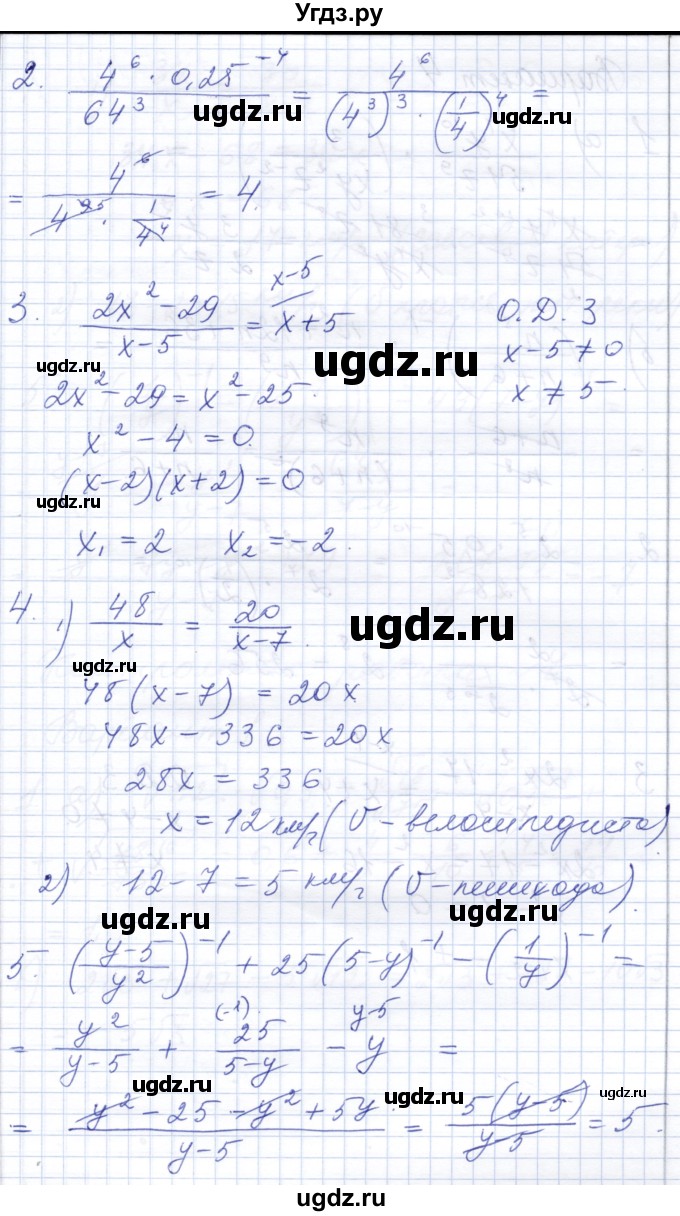 Угдз.ру
2. (4^6 · 0,25^-4) / 64^3 = 4^6 / ((4^3)^3 · (1/4)^4) =
ugdz.ru ugdz.ru
= 4^6 / (4^9 · 1/4^4) = 4.
3. (2x² - 29) / (x - 5) = x + 5 (x-5 О.Д.З
ugdz.ru ugdz.ru x - 5 ≠ 0
2x² - 29 = x² - 25. x ≠ 5.
x² - 4 = 0.
(x-2)(x+2) = 0
ugdz.ru
x₁ = 2 x₂ = -2.
4. 1) 48/x = 20/(x-7).
ugdz.ru ugdz.ru
48(x-7) = 20x
48x - 336 = 20x
28x = 336
x = 12 км/г (υ - велосипедиста)
2) 12 - 7 = 5 км/г (υ - пешехода).
ugdz.ru ugdz.ru
5. ((y-5)/y²)^-1 + 25(5-y)^-1 - (1/y)^-1 =
= y²/(y-5) + 25/(5-y) (-1) - y (y-5 =
ugdz.ru ugdz.ru
= (y² - 25 - y² + 5y) / (y-5) = 5(y-5) / (y-5) = 5.
ugdz.ru ugdz.ru
ugdz.ru